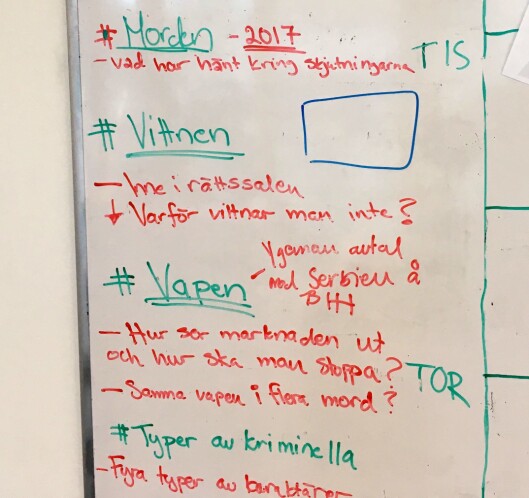 # Morden - 2017
- vad har hänt kring skjutningarna TIS
# Vittnen
- Inne i rättssalen
↓ Varför vittnar man inte?
avtal
med Serbien å
BIH
# Vapen
- Hur ser marknaden ut
och hur ska man stoppa? TOR
- Samma vapen i flera mord?
# Typer av kriminella
- Fyra typer av karaktärer